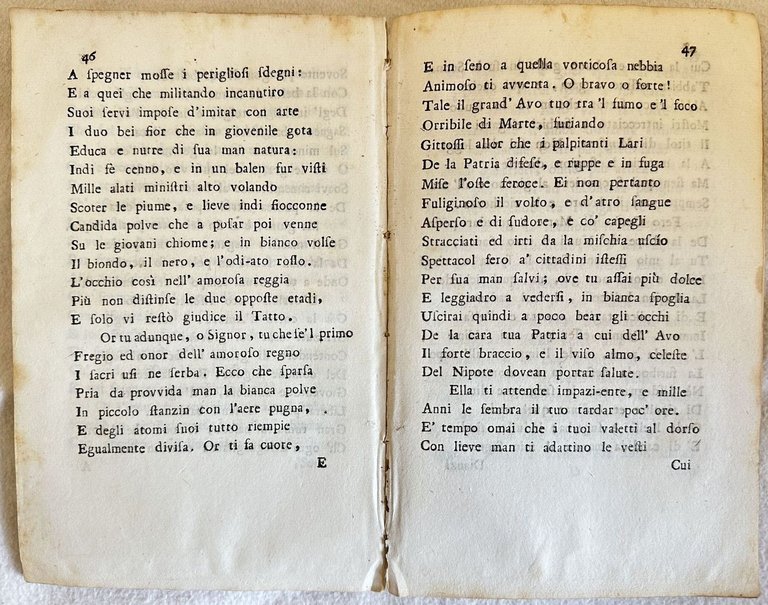 46
A ſpegner moſſe i periglioſi ſdegni:
E a quei che militando incanutiro
Suoi ſervi impoſe d'imitar con arte
I duo bei fior che in giovenile gota
Educa e nutre di ſua man natura:
Indi fè cenno, e in un balen fur viſti
Mille alati miniſtri alto volando
Scoter le piume, e lieve indi fiocconne
Candida polve che a poſar poi venne
Su le giovani chiome; e in bianco volſe
Il biondo, il nero, e l'odi-ato roſſo.
L'occhio così nell' amoroſa reggia
Più non diſtinſe le due oppoſte etadi,
E ſolo vi reſtò giudice il Tatto.
Or tu adunque, o Signor, tu che ſe'l primo
Fregio ed onor dell' amoroſo regno
I ſacri uſi ne ſerba. Ecco che ſparſa
Pria da provvida man la bianca polve
In piccolo ſtanzin con l'aere pugna,
E degli atomi ſuoi tutto riempie
Egualmente diviſa. Or ti fa cuore,
E
47
E in ſeno a quella vorticoſa nebbia
Animoſo ti avventa. O bravo o forte!
Tale il grand' Avo tuo tra 'l fumo e 'l foco
Orribile di Marte, furiando
Gittoſſi allor che i palpitanti Lari
De la Patria difeſe, e ruppe e in fuga
Miſe l'oſte feroce. Ei non pertanto
Fuliginoſo il volto, e d'atro ſangue
Aſperſo e di ſudore, e co' capegli
Stracciati ed irti da la miſchia uſcìo
Spettacol fero a' cittadini iſteſſi
Per ſua man ſalvi; ove tu aſſai più dolce
E leggiadro a vederſi, in bianca ſpoglia
Uſcirai quindi a poco bear gli occhi
De la cara tua Patria a cui dell' Avo
Il forte braccio, e il viſo almo, celeſte
Del Nipote dovean portar ſalute.
Ella ti attende impazi-ente, e mille
Anni le ſembra il tuo tardar poc' ore.
E' tempo omai che i tuoi valetti al dorſo
Con lieve man ti adattino le veſti
Cui